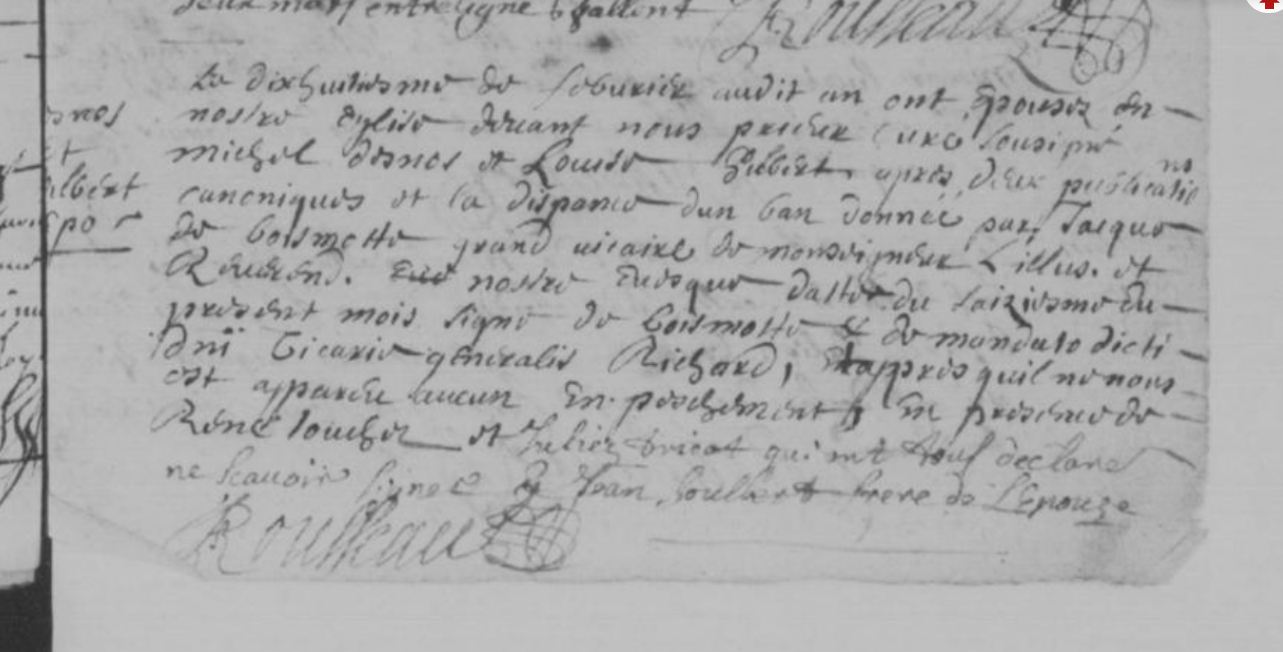 deux mots entreligne & vallent Rousseau
Le dixhuitiesme de feburier audit an ont Epousez en
nostre Eglise deuant nous prieur curé sousigné
michel desnos et Louise Gilbert apres deux publicatiõ
ns
canoniques et la dispance dun ban donnée par Jacque
de boismotte grand uicaire de monseigneur L'illus. et
Reuerend. nostre Euesque datte du saiziesme du
present mois signé de boismotte & de mandato dicti
dnï Vicarii generalis Richard, Et apprés quil ne nous
est apparûe aucun En peschement, En presence de
René Louchet et Julien tricot qui ont tous declaré
ne scauoir signe & Jean frere de L'Epouze
Rousseau
snos
et
ilbert
spo